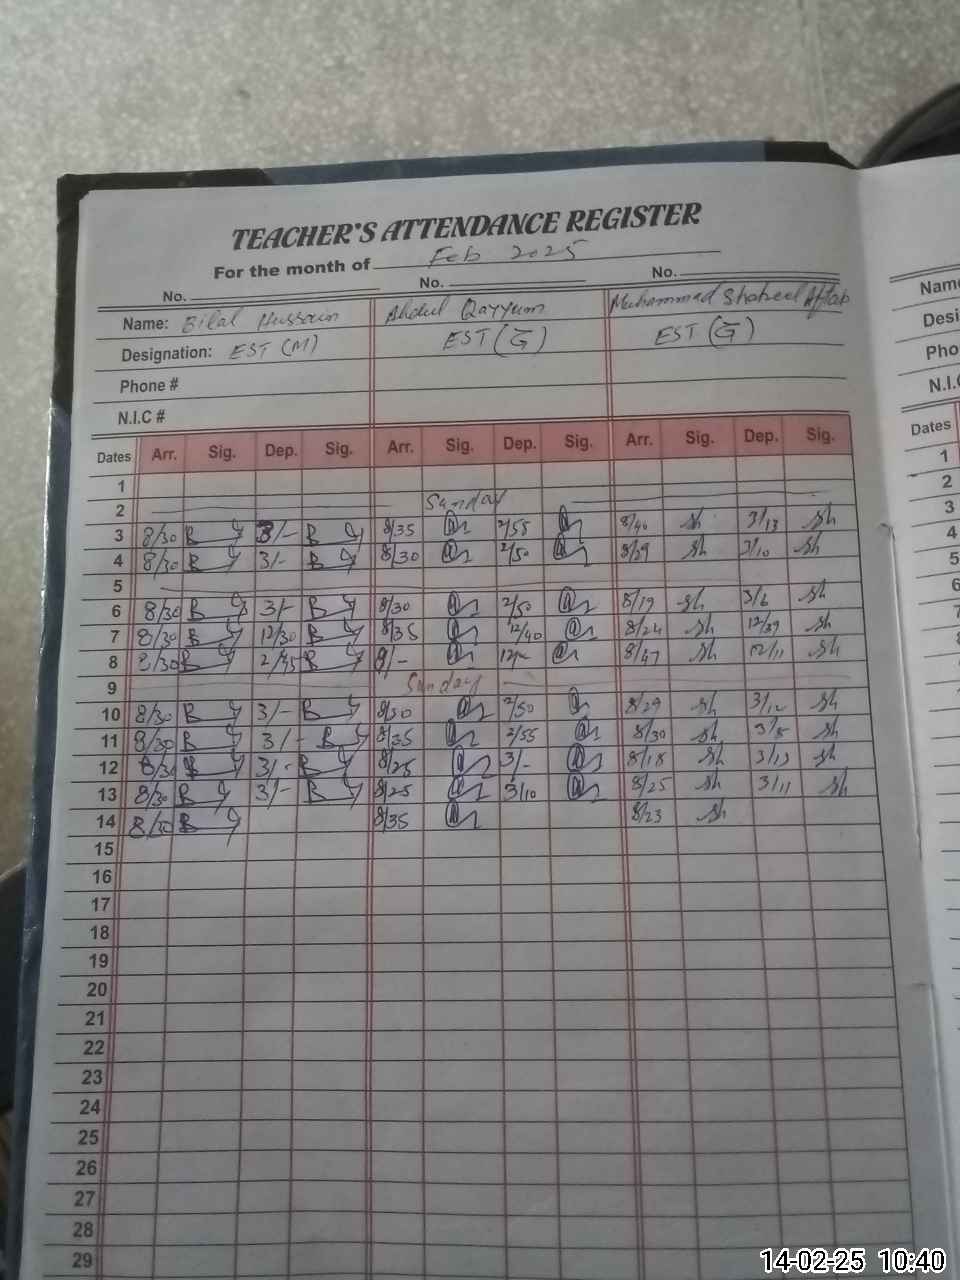 TEACHER'S ATTENDANCE REGISTER
For the month of Feb 2025
No. No. No.
Name: Bilal Hussain Abdul Qayyum Muhammad Shabeel Aftab
Designation: EST (M) EST (G) EST (G)
Phone #
N.I.C #
Dates Arr. Sig. Dep. Sig. Arr. Sig. Dep. Sig. Arr. Sig. Dep. Sig.
1
2 Sunday
3 8/30 B 3/- B 8/35 2/55 8/40 sh 3/13 sh
4 8/30 B 3/- B 8/30 2/50 8/29 sh 3/10 sh
5
6 8/30 B 3/- B 8/30 2/50 8/19 sh 3/6 sh
7 8/30 B 12/30 B 8/35 12/40 8/24 sh 12/39 sh
8 8/30 B 2/45 B 9/- 12/- 8/47 sh 12/11 sh
9 Sunday
10 8/30 B 3/- B 8/30 2/50 8/29 sh 3/12 sh
11 8/30 B 3/- B 8/35 2/55 8/30 sh 3/5 sh
12 8/30 B 3/- B 8/25 3/- 8/18 sh 3/13 sh
13 8/30 B 3/- B 8/25 3/10 8/25 sh 3/11 sh
14 8/30 B 8/35 8/23 sh
15
16
17
18
19
20
21
22
23
24
25
26
27
28
29
Name
Desi
Pho
N.I.C
Dates
1
2
3
4
5
6
7
8
9
10
11
12
13
14
15
16
17
14-02-25 10:40